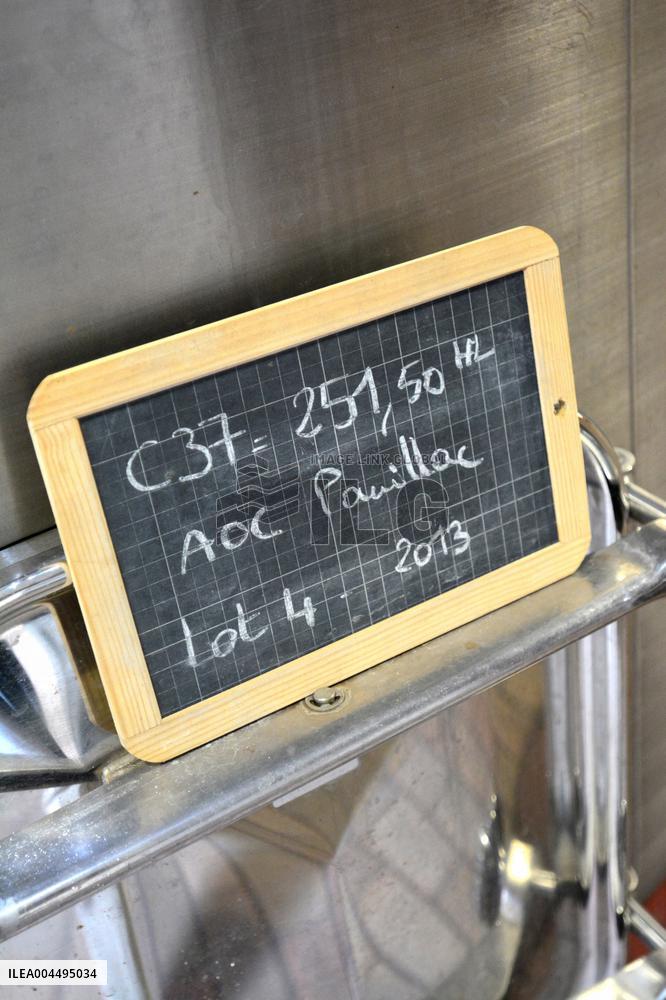 C37= 251,50 HL
AOC Pauillac
Lot 4 - 2013
IMAGE LINK GLOBAL
ILG
ILEA004495034